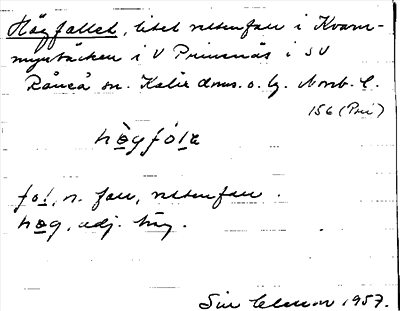 Högfallet, litet vattenfall i Kvarn-
myrbäcken i V Prinsnäs i SV
Råneå sn. Kalix doms. o. lg. Norrb. l.
156 (Pri)
högfola
fol, n. fall, vattenfall.
høg, adj. hög.
Siw 1957.